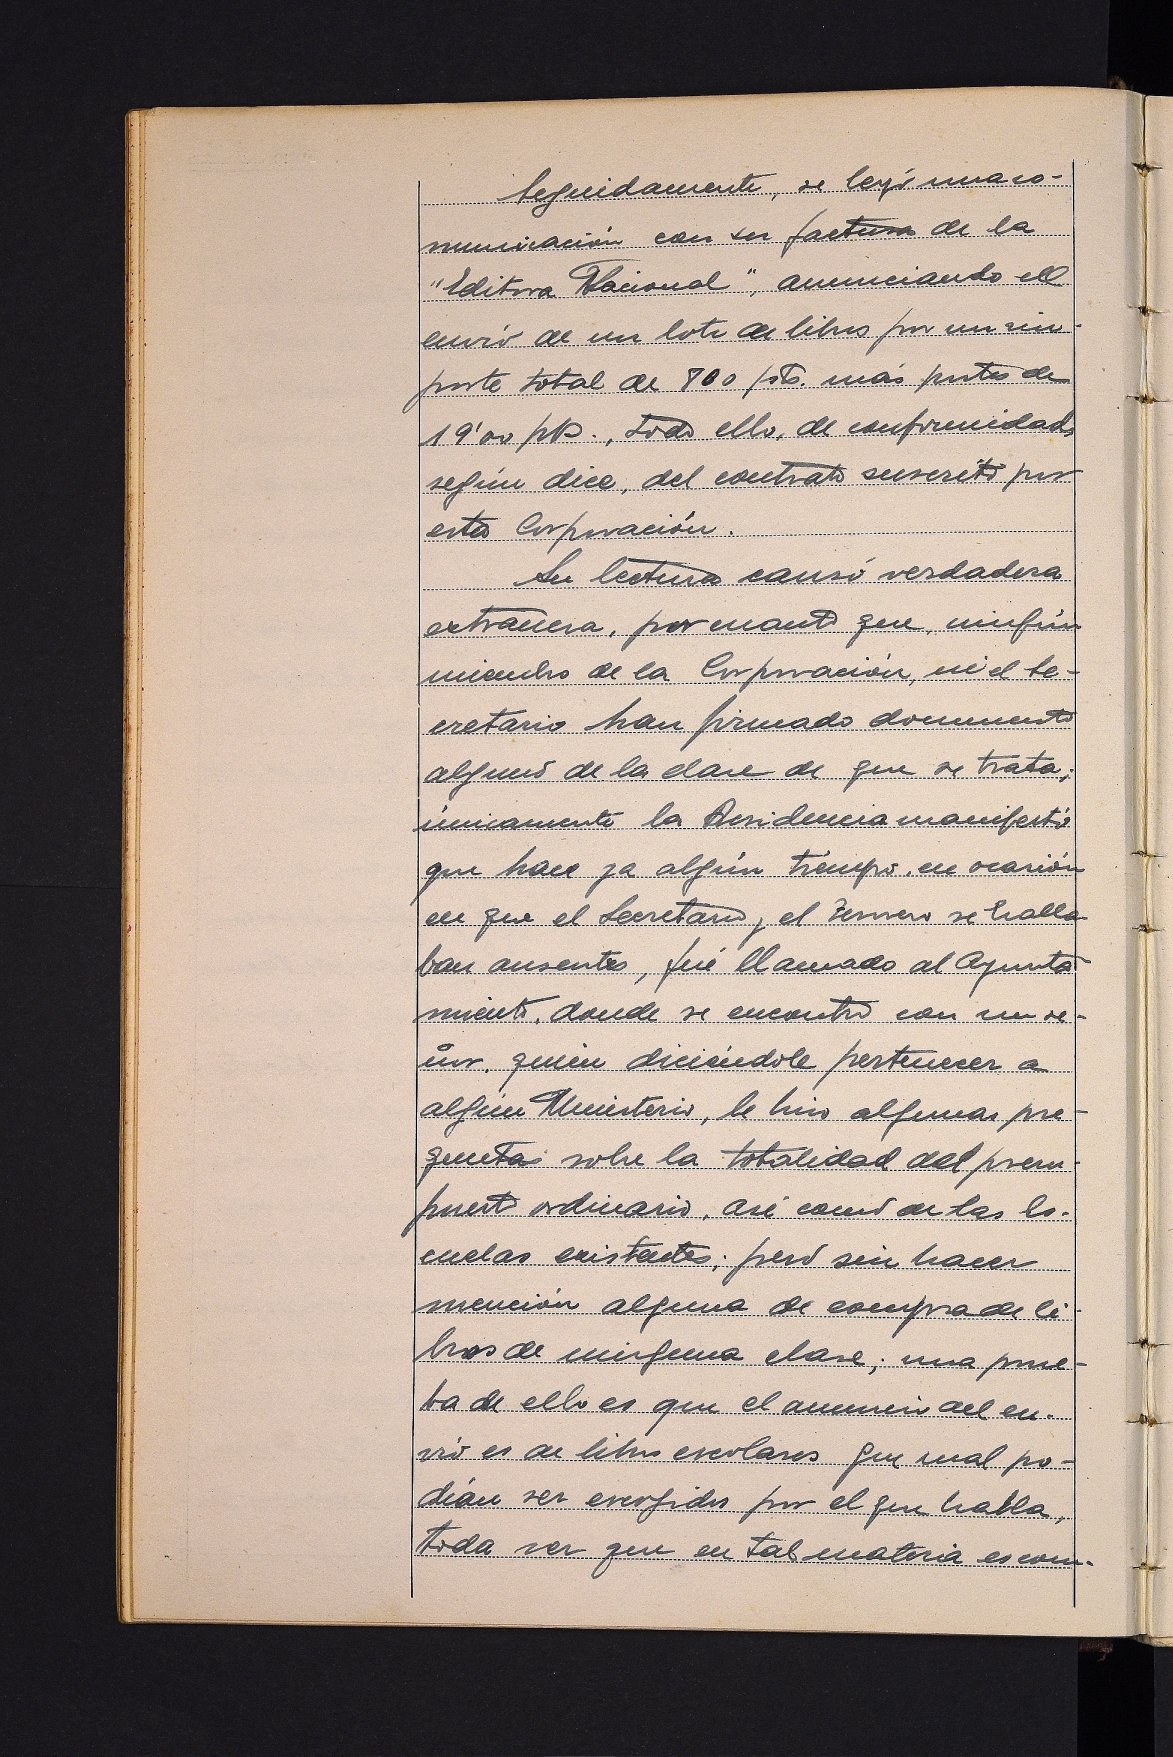 Seguidamente, se leyó una co-
municación con su factura de la
"Editora Nacional", anunciando el
envío de un lote de libros por un im-
porte total de 700 pts. más portes de
19'00 pts., todo ello, de conformidad,
según dice, del contrato suscrito por
esta Corporación.
Su lectura causó verdadera
extrañeza, por cuanto que, ningún
miembro de la Corporación, ni el Se-
cretario han firmado documento
alguno de la clase de que se trata;
únicamente la Presidencia manifestó
que hace ya algún tiempo, en ocasión
en que el Secretario y el Temero se halla
ban ausentes, fué llamado al Ayunta
miento, donde se encontró con un se-
ñor, quien diciéndole pertenecer a
algún Ministerio, le hizo algunas pre-
guntas sobre la totalidad del presu-
puesto ordinario, así como de las Es-
cuelas existentes; pero sin hacer
mención alguna de compra de li-
bros de ninguna clase; una prue-
ba de ello es que el anuncio del en-
vío es de libros escolares que mal po-
dían ser escogidos por el que habla,
toda vez que en tal materia es com-